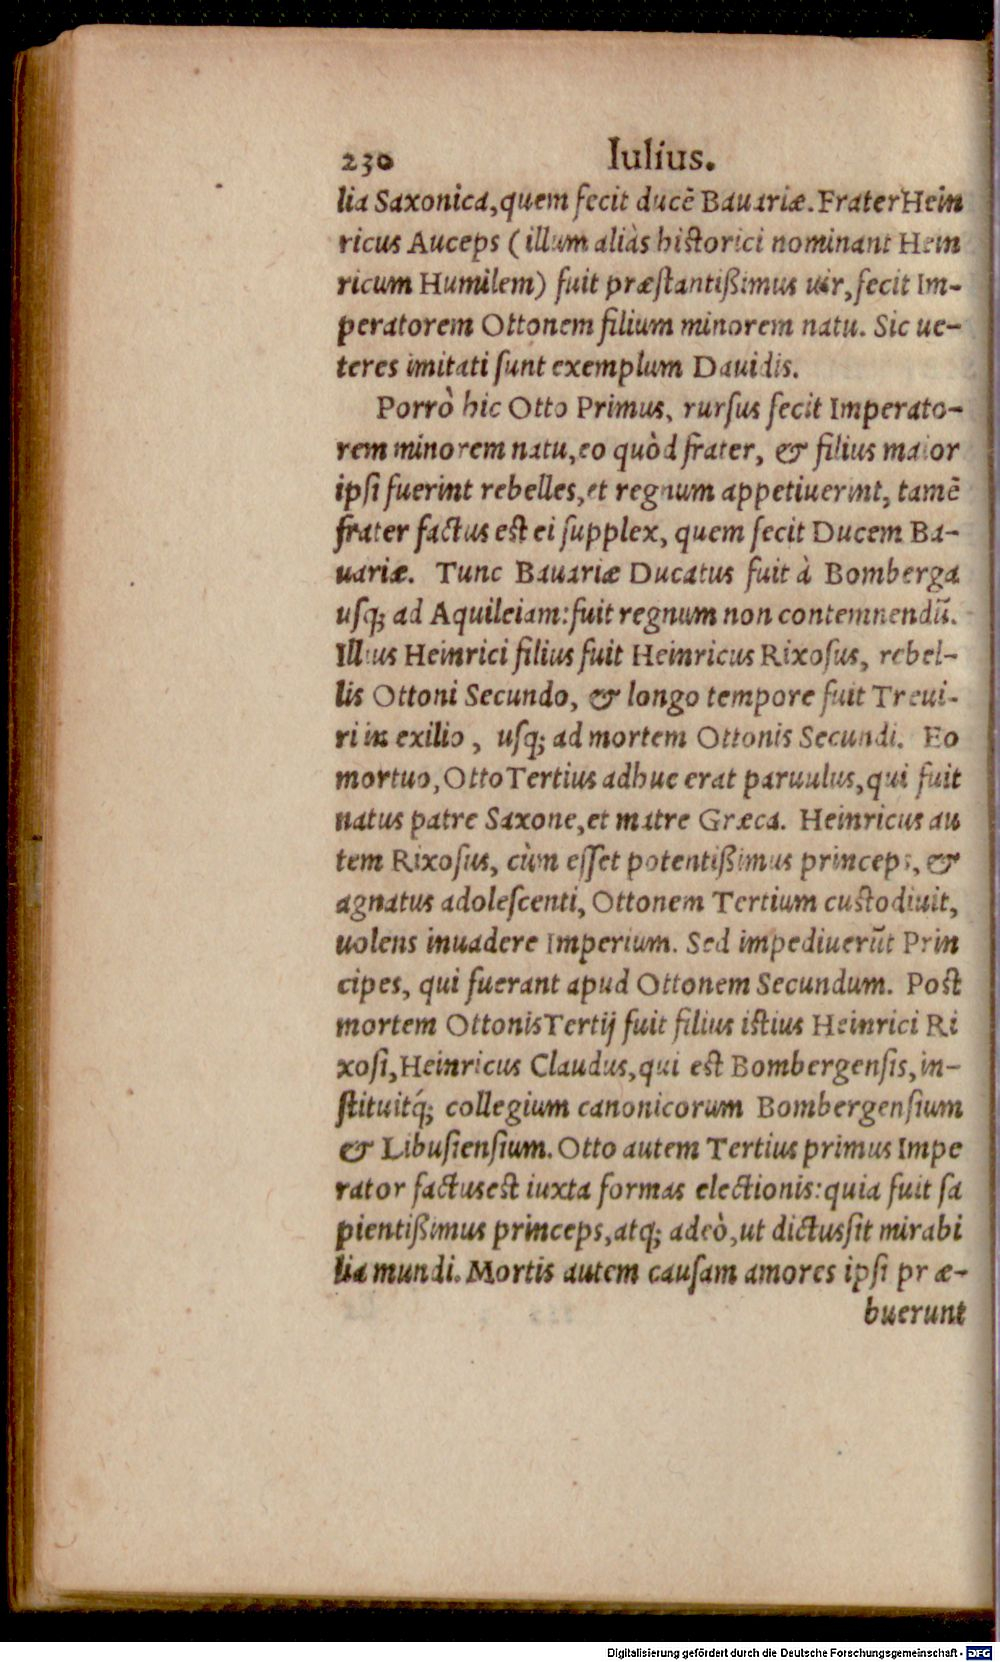 230 Iulius.
lia Saxonica, quem fecit ducē Bauariæ. Frater Hein
ricus Auceps (illum aliàs historici nominant Hein
ricum Humilem) fuit præstantißimus uir, fecit Im-
peratorem Ottonem filium minorem natu. Sic ue-
teres imitati sunt exemplum Dauidis.
Porrò hic Otto Primus, rursus fecit Imperato-
rem minorem natu, eo quòd frater, & filius maior
ipsi fuerint rebelles, et regnum appetiuerint, tamē
frater factus est ei supplex, quem fecit Ducem Ba-
uariæ. Tunc Bauariæ Ducatus fuit à Bomberga
usq; ad Aquileiam: fuit regnum non contemnendū.
Illius Heinrici filius fuit Heinricus Rixosus, rebel-
lis Ottoni Secundo, & longo tempore fuit Treui-
ri in exilio, usq; ad mortem Ottonis Secundi. Eo
mortuo, Otto Tertius adhuc erat paruulus, qui fuit
natus patre Saxone, et matre Græca. Heinricus au
tem Rixosus, cùm esset potentißimus princeps, &
agnatus adolescenti, Ottonem Tertium custodiuit,
uolens inuadere Imperium. Sed impediuerūt Prin
cipes, qui fuerant apud Ottonem Secundum. Post
mortem Ottonis Tertij fuit filius istius Heinrici Ri
xosi, Heinricus Claudus, qui est Bombergensis, in-
stituitq́; collegium canonicorum Bombergensium
& Libusiensium. Otto autem Tertius primus Impe
rator factus est iuxta formas electionis: quia fuit sa
pientißimus princeps, atq; adeò, ut dictus sit mirabi
lia mundi. Mortis autem causam amores ipsi præ-
buerunt
Digitalisierung gefördert durch die Deutsche Forschungsgemeinschaft - DFG